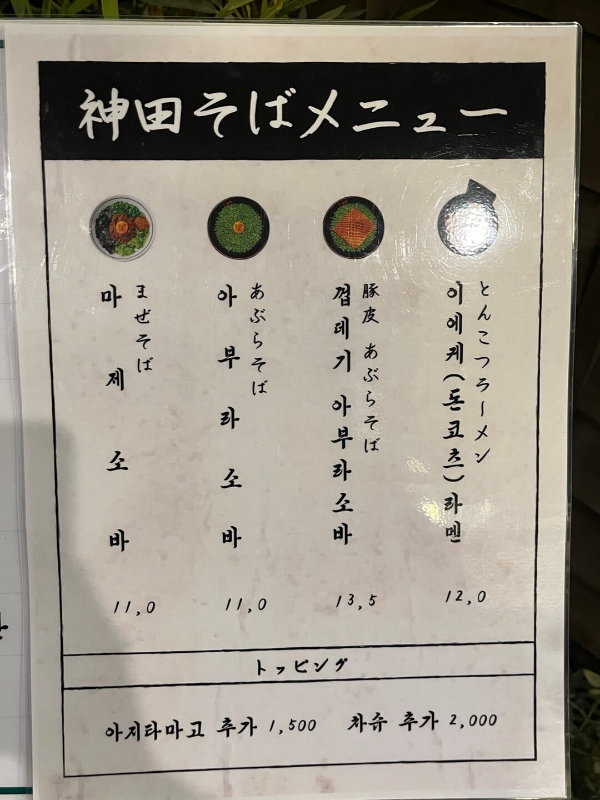 神田そばメニュー
とんこつラーメン
이에케(돈코츠)라멘
12,0
豚皮 あぶらそば
껍데기 아부라소바
13,5
あぶらそば
아부라소바
11,0
まぜそば
마제소바
11,0
トッピング
아지타마고 추가 1,500 차슈 추가 2,000